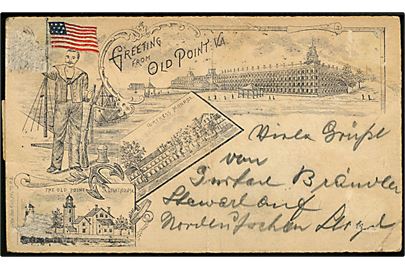 GREETING
FROM
OLD POINT, VA.
THE OLD POINT
Viele Grüße
von
Gustav
Steward auf
Norddeutschen Lloyd